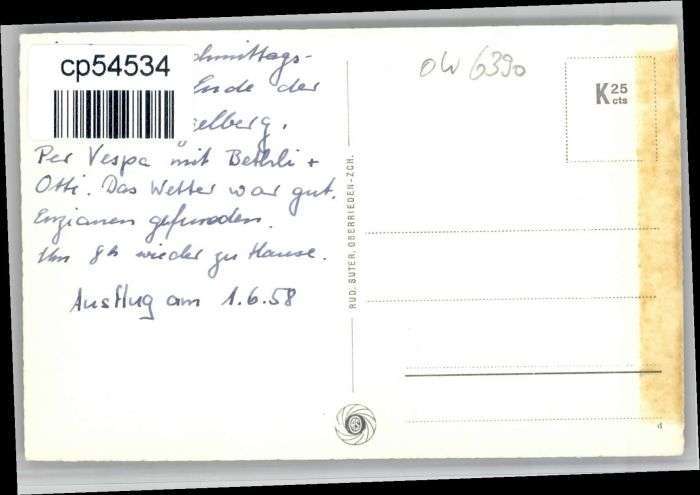 cp54534
der
Per Vespa mit Bethli +
Otti. Das Wetter war gut.
Enzianen gefunden.
Um 8h wieder zu Hause.
Ausflug am 1.6.58
OW 6390
K 25
cts
RUD. SUTER, OBERRIEDEN-ZCH.